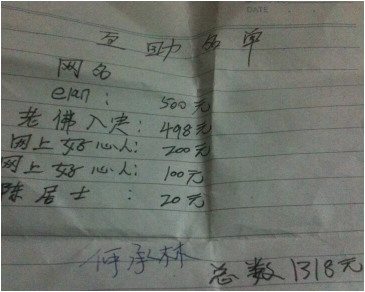 DATE
互助名单
网名
elan: 500元
老佛入定: 498元
网上好心人: 200元
网上好心人: 100元
陈居士: 20元
何承林
总数1318元